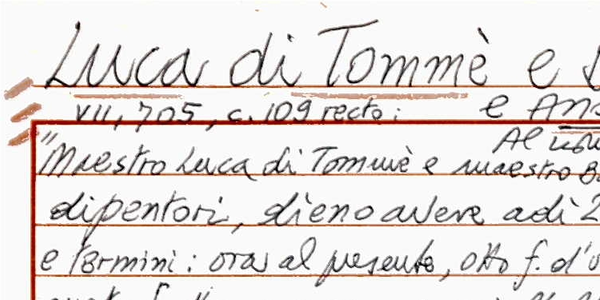 Luca di Tommè e
VII, 705, c. 109 recto: e An
Al
"Maestro Luca di Tommè e maestro B
dipentori, dieno avere adì 2
e tèrmini: ora al presente, otto f. d'